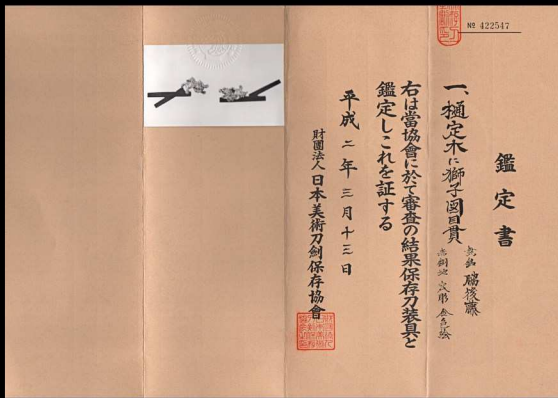 № 422547
鑑定書
一、樋定木に獅子図目貫
無銘 脇後藤
赤銅地 容彫 金色絵
右は當協會に於て審査の結果保存刀装具と
鑑定しこれを証する
平成二年三月十三日
財團法人日本美術刀劍保存協會